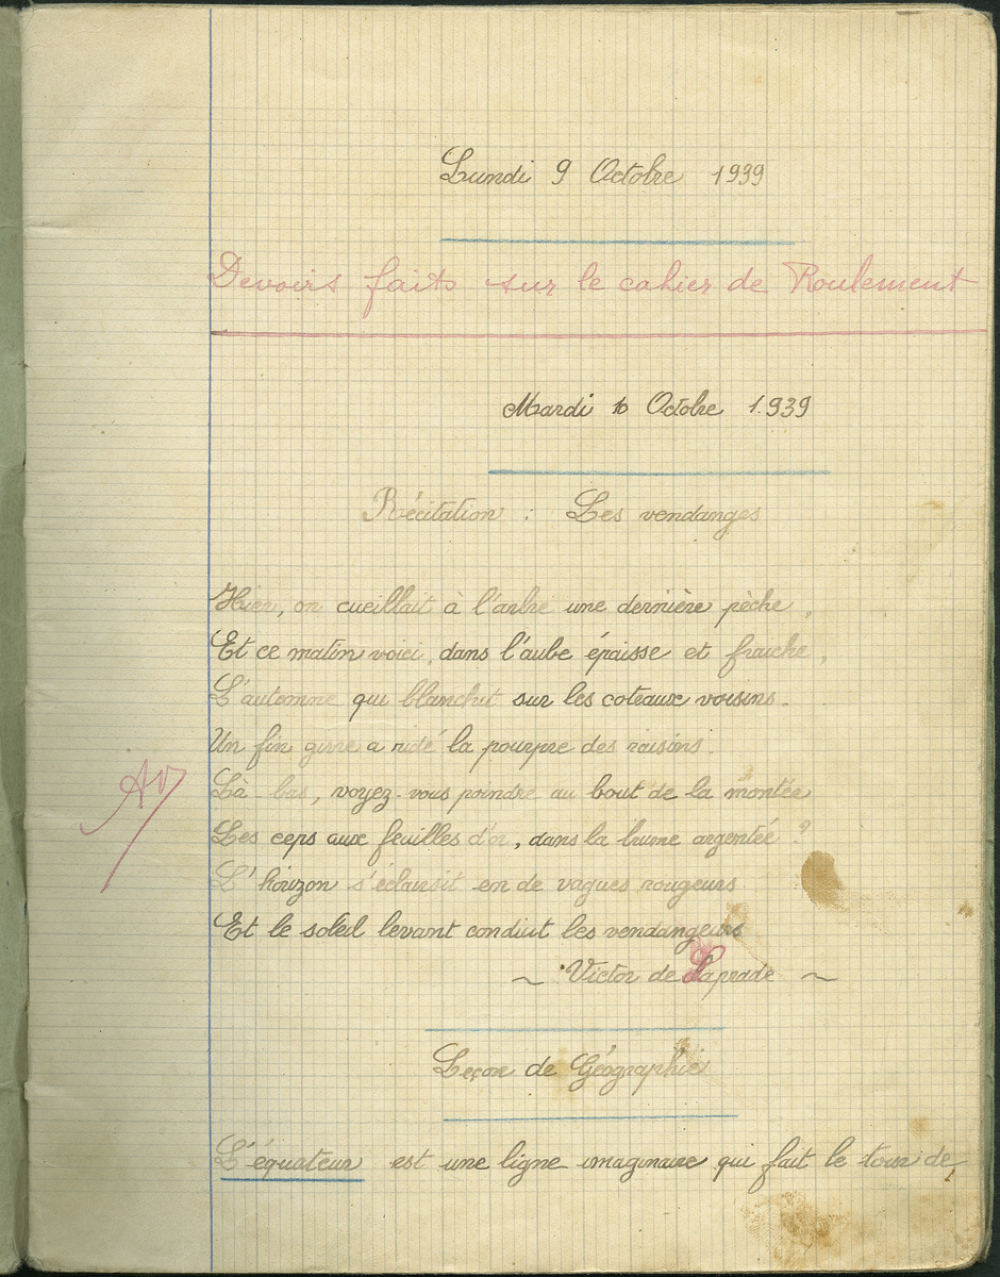 Lundi 9 Octobre 1939
Devoirs faits sur le cahier de Roulement
Mardi 10 Octobre 1.939
Récitation : Les vendanges
Hier, on cueillait à l'arbre une dernière pèche,
Et ce matin voici, dans l'aube épaisse et fraiche,
L'automne qui blanchit sur les coteaux voisins.
Un fin givre a ridé la pourpre des raisins.
Là-bas, voyez-vous poindre au bout de la montée
Les ceps aux feuilles d'or, dans la brume argentée ?
L'horizon s'éclaircit en de vagues rougeurs
Et le soleil levant conduit les vendangeurs
~ Victor de Laprade ~
Leçon de Géographie
L'équateur est une ligne imaginaire qui fait le tour de